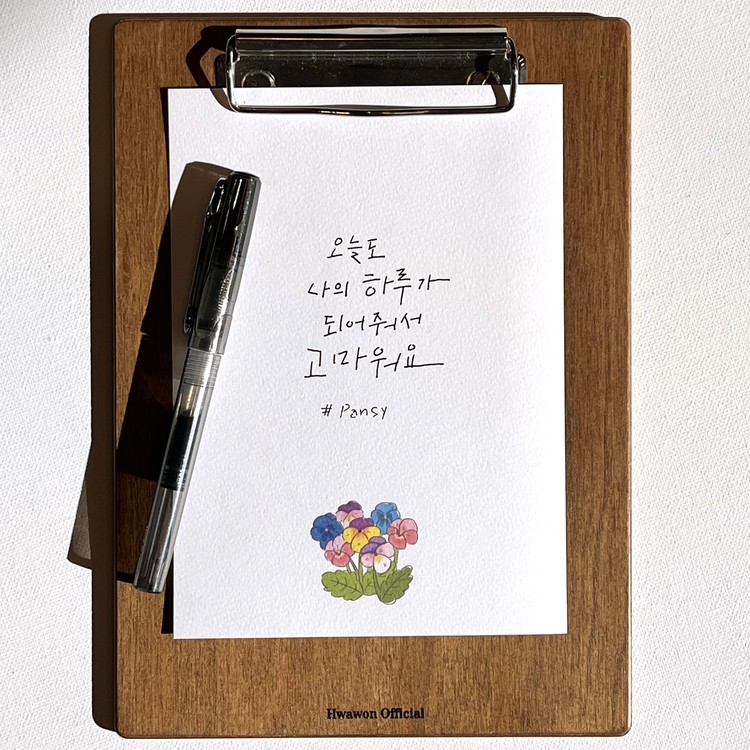 오늘도
나의 하루가
되어줘서
고마워요
# Pansy
Hwawon Official